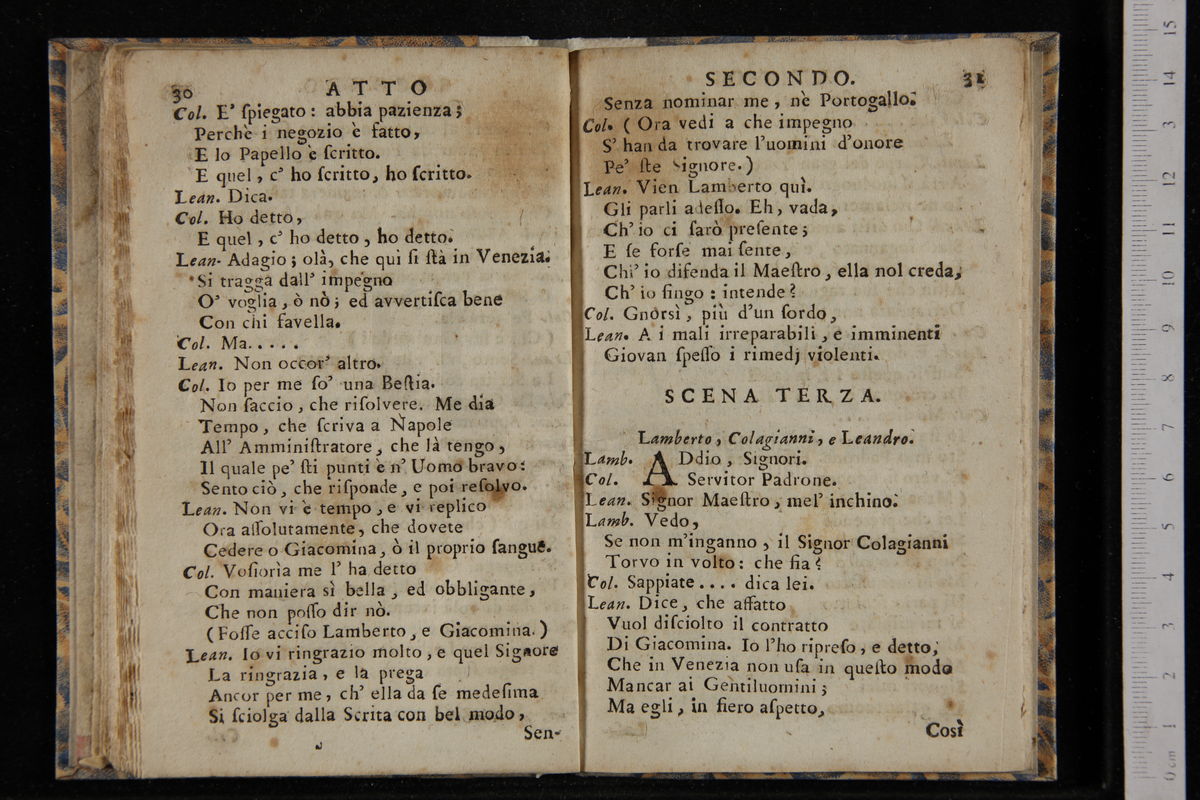 30 ATTO
Col. E' ſpiegato : abbia pazienza ;
Perchè i negozio è fatto,
E lo Papello è ſcritto.
E quel , c' ho ſcritto, ho ſcritto.
Lean. Dica.
Col. Ho detto,
E quel , c' ho detto , ho detto.
Lean- Adagio ; olà, che qui ſi ſtà in Venezia.
Si tragga dall' impegno
O' voglia , ò nò ; ed avvertiſca bene
Con chi favella.
Col. Ma. . . . .
Lean. Non occor' altro.
Col. Io per me ſo' una Beſtia.
Non faccio , che riſolvere. Me dia
Tempo , che ſcriva a Napole
All' Amminiſtratore , che là tengo ,
Il quale pe' ſti punti è n' Uomo bravo :
Sento ciò , che riſponde , e poi reſolvo.
Lean. Non vi è tempo , e vi replico
Ora aſſolutamente, che dovete
Cedere o Giacomina , ò il proprio ſangue.
Col. Voſiorìa me l' ha detto
Con maniera sì bella , ed obbligante ,
Che non poſſo dir nò.
( Foſſe acciſo Lamberto , e Giacomina. )
Lean. Io vi ringrazio molto , e quel Signore
La ringrazia , e la prega
Ancor per me , ch' ella da ſe medeſima
Si ſciolga dalla Scrita con bel modo ,
Sen-
SECONDO. 31
Senza nominar me , nè Portogallo.
Col. ( Ora vedi a che impegno
S' han da trovare l'uomini d'onore
Pe' ſte Signore. )
Lean. Vien Lamberto quì.
Gli parli adeſſo. Eh, vada,
Ch' io ci ſarò preſente ;
E ſe forſe mai ſente ,
Ch' io difenda il Maeſtro , ella nol creda,
Ch' io fingo : intende ?
Col. Gnorsì , più d'un ſordo ,
Lean. A i mali irreparabili , e imminenti
Giovan ſpeſſo i rimedj violenti.
SCENA TERZA.
Lamberto , Colagianni , e Leandro.
Lamb. ADdio , Signori.
Col. Servitor Padrone.
Lean. Signor Maeſtro , mel' inchino.
Lamb. Vedo ,
Se non m'inganno , il Signor Colagianni
Torvo in volto : che ſia ?
Col. Sappiate . . . . dica lei.
Lean. Dice , che affatto
Vuol diſciolto il contratto
Di Giacomina. Io l'ho ripreſo , e detto,
Che in Venezia non uſa in queſto modo
Mancar ai Gentiluomini ;
Ma egli , in fiero aſpetto,
Così
0 cm 1 2 3 4 5 6 7 8 9 10 11 12 13 14 15